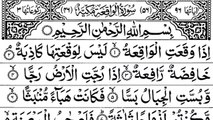 سُورَةُ الْوَاقِعَةِ مَكِّيَّةٌ
بِسْمِ اللَّهِ الرَّحْمَٰنِ الرَّحِيمِ
إِذَا وَقَعَتِ الْوَاقِعَةُ ۝ لَيْسَ لِوَقْعَتِهَا كَاذِبَةٌ ۝
خَافِضَةٌ رَافِعَةٌ ۝ إِذَا رُجَّتِ الْأَرْضُ رَجًّا ۝
وَبُسَّتِ الْجِبَالُ بَسًّا ۝ فَكَانَتْ هَبَاءً مُنْبَثًّا ۝